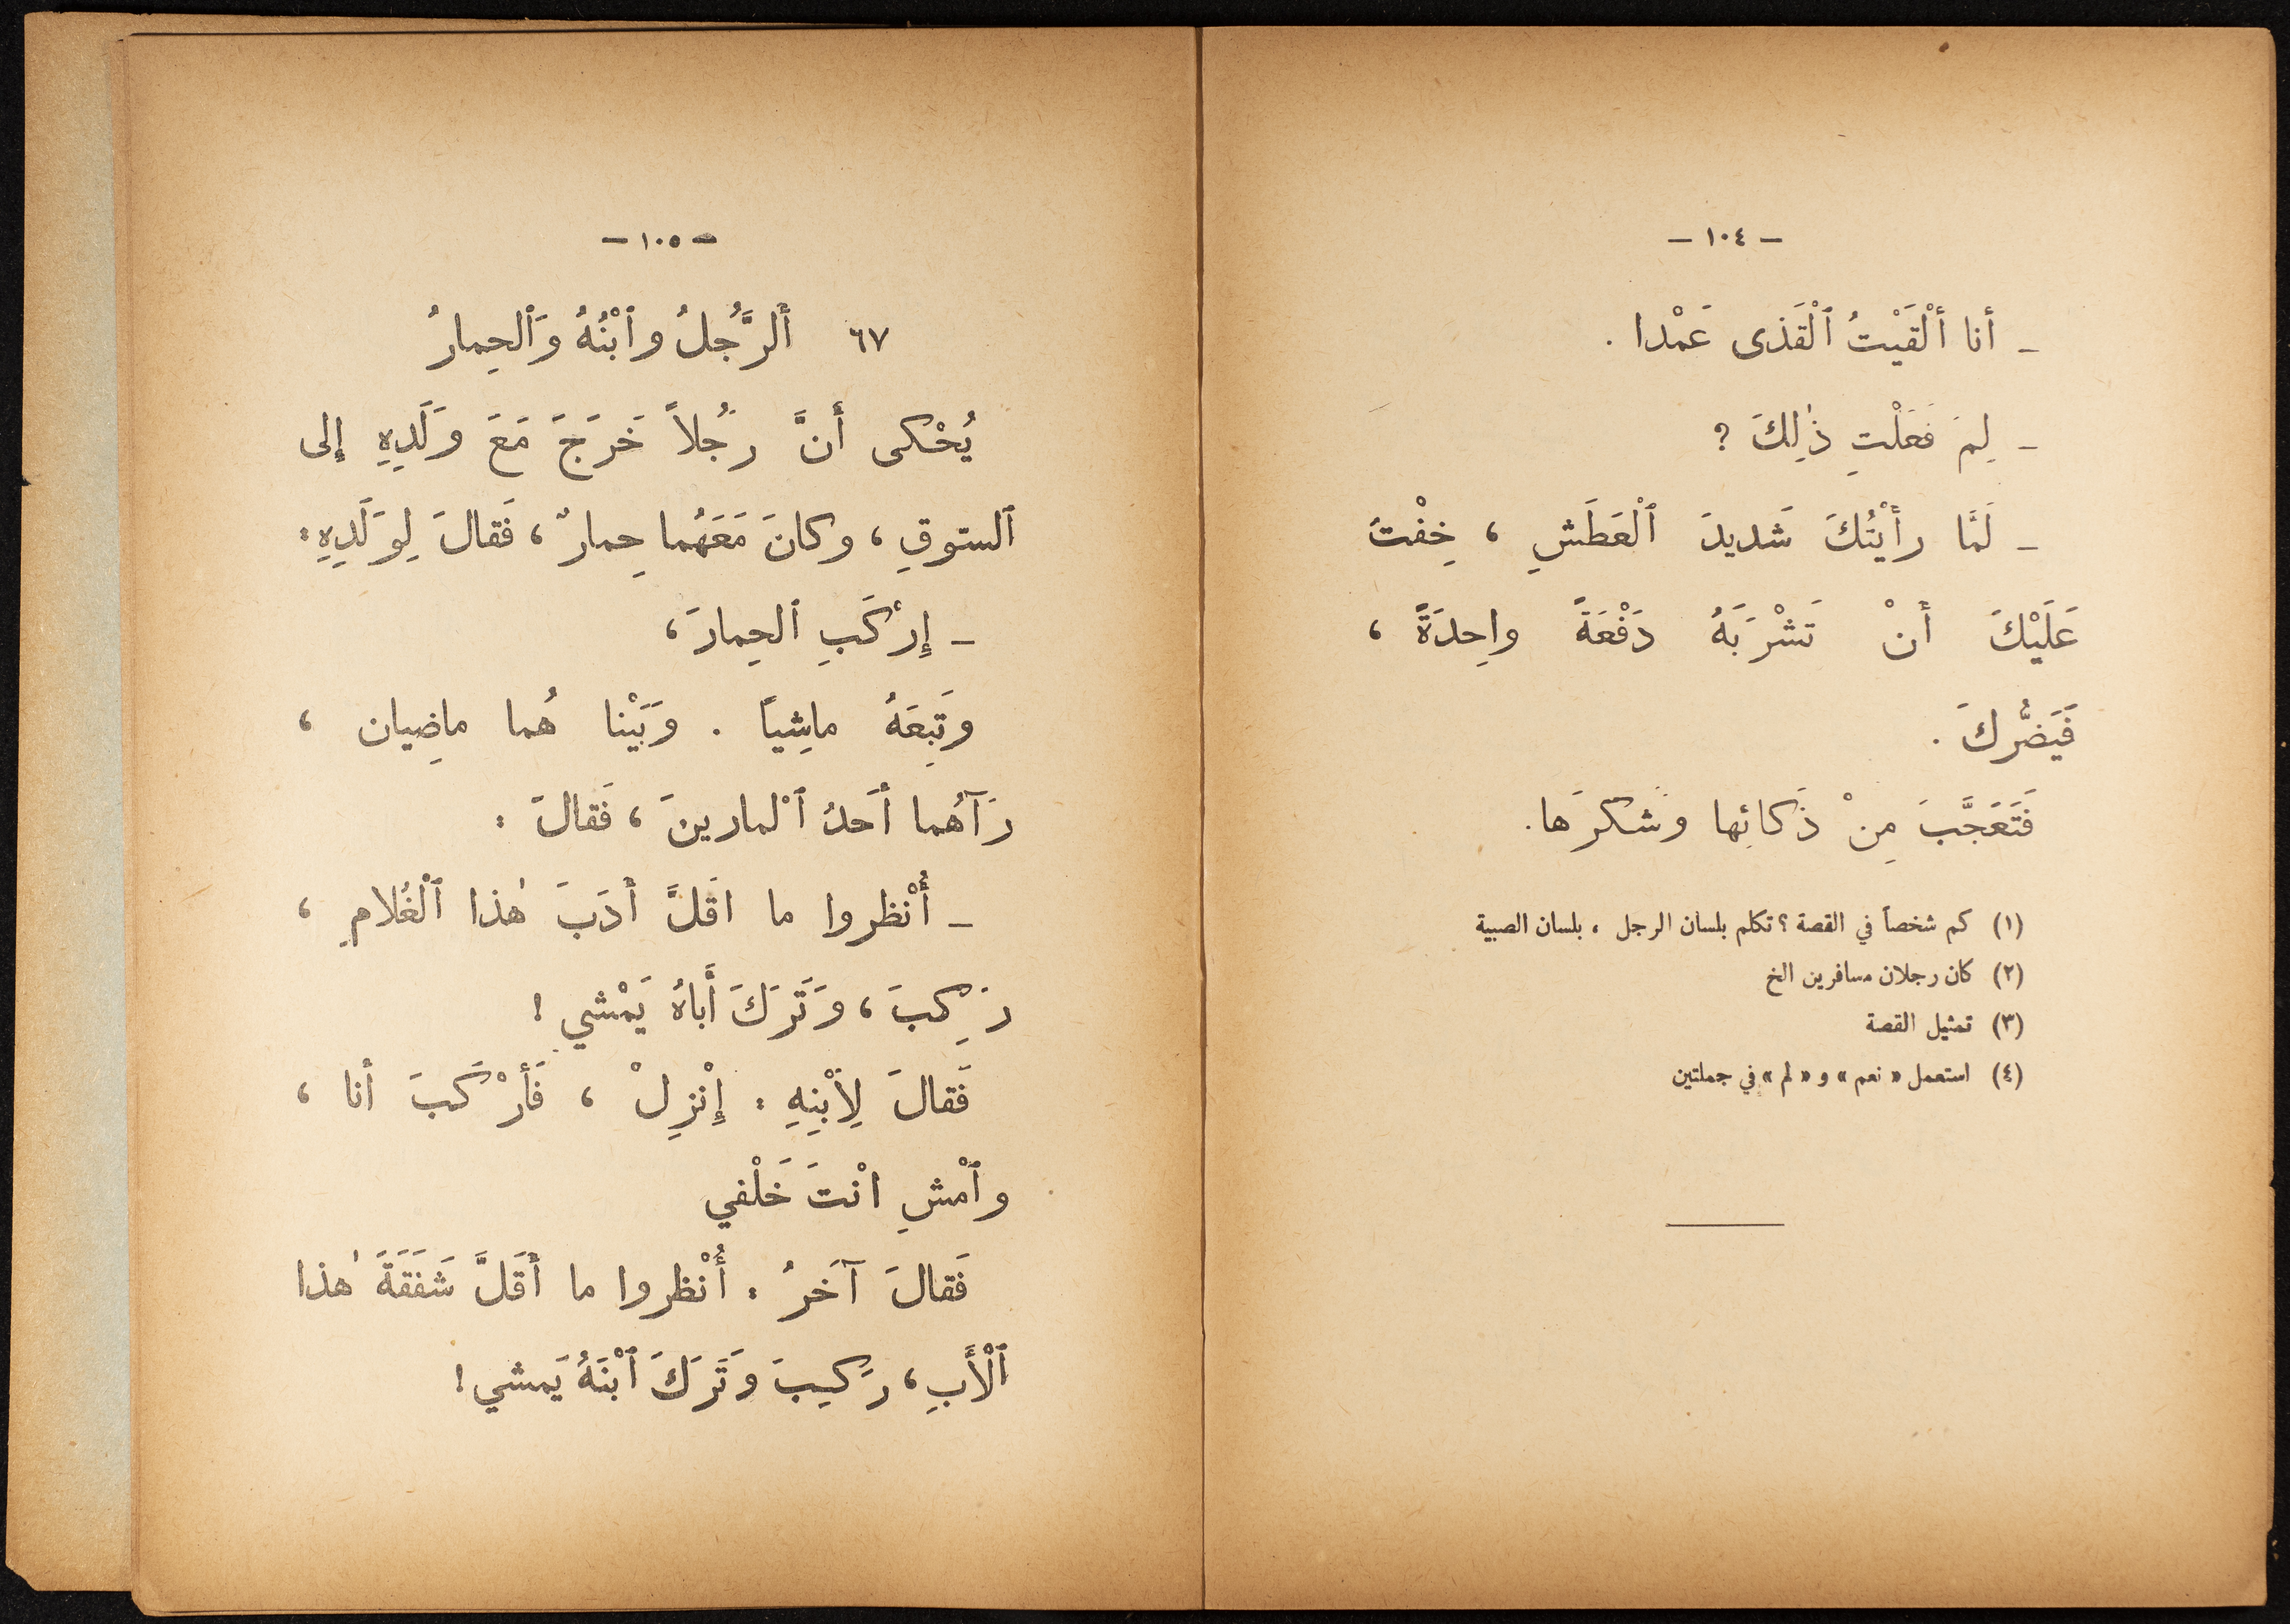 - ١٠٤ -
- أنا ألْقَيْتُ ٱلْقَذى عَمْدا .
- لِمَ فَعَلْتِ ذٰلِكَ ؟
- لَمَّا رأَيْتُكَ شَديدَ ٱلْعَطَشِ ، خِفْتُ
عَلَيْكَ أَنْ تَشْرَبَهُ دَفْعَةً واحِدَةً ،
فَيَضُّركَ .
فَتَعَجَّبَ مِنْ ذَكائِها وَشَكَرَها.
(١) كم شخصاً في القصة ؟ تكلم بلسان الرجل ، بلسان الصبية
(٢) كان رجلان مسافرين الخ
(٣) تمثيل القصة
(٤) استعمل « نعم » و « لم » في جملتين
- ١٠٥ -
٦٧ أَلرَّجُلُ وٱبْنُهُ وَٱلحِمارُ
يُحْكى أَنَّ رَجُلاً خَرَجَ مَعَ وَلَدِهِ إلى
ٱلسّوقِ ، وكانَ مَعَهُما حِمارٌ ، فَقالَ لِوَلَدِهِ :
- إِرْكَبِ ٱلحِمارَ ،
وتَبِعَهُ ماشِياً . وَبَيْنا هُما ماضِيان ،
رَآهُما أَحَدُ ٱلْمارينَ ، فَقالَ :
- أُنْظروا ما اقَلَّ أَدَبَ هٰذا ٱلْغُلامِ ،
رَكِبَ ، وَتَرَكَ أَباهُ يَمْشي !
فَقالَ لِٱبْنِهِ : إِنْزِلْ ، فَأَرْكَبَ أنا ،
وٱمْشِ انْتَ خَلْفي
فَقالَ آخَرُ : أُنْظروا ما أَقَلَّ شَفَقَةَ هٰذا
ٱلْأَبِ ، رَكِبَ وَتَرَكَ ٱبْنَهُ يَمشي !